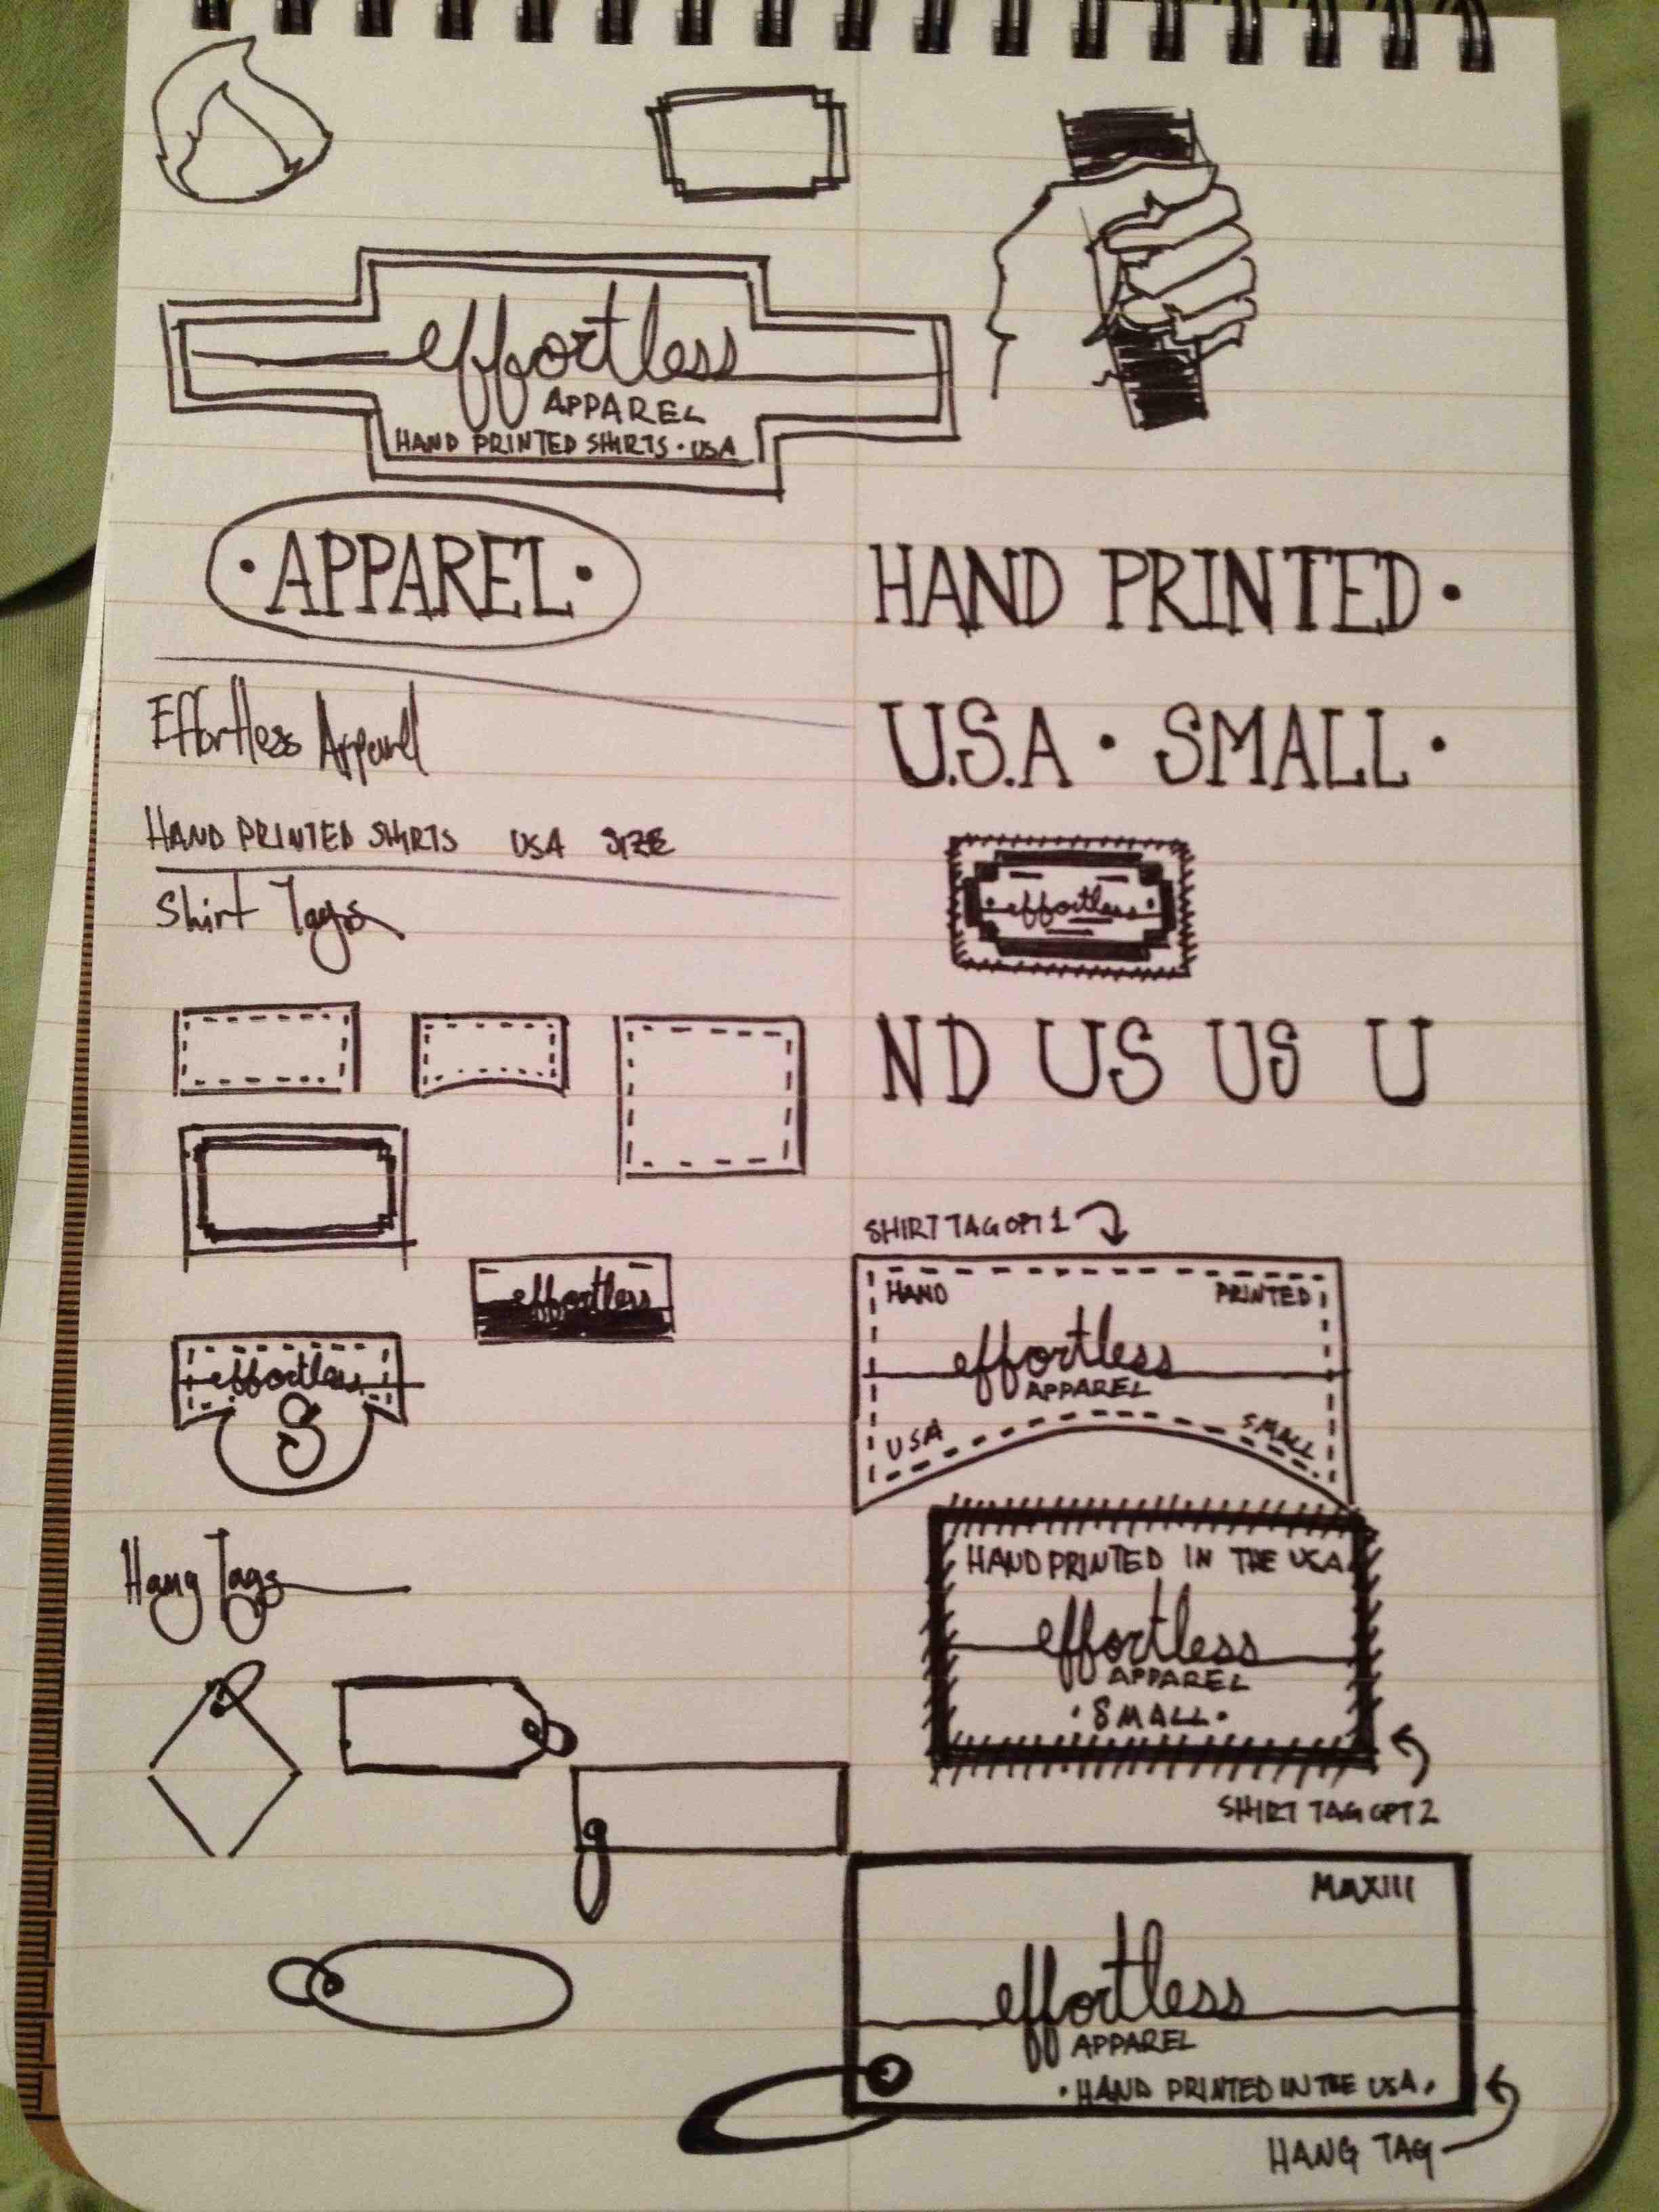 effortless
APPAREL
HAND PRINTED SHIRTS · USA
· APPAREL ·
HAND PRINTED ·
Effortless Apparel
U.S.A · SMALL ·
HAND PRINTED SHIRTS USA SIZE
Shirt Tags
· effortless ·
ND US US U
SHIRT TAG OPT 1
HAND PRINTED
effortless
APPAREL
USA SMALL
effortless
effortless
S
Hang Tags
HAND PRINTED IN THE USA
effortless
APPAREL
· SMALL ·
SHIRT TAG OPT 2
MMXIII
effortless
APPAREL
· HAND PRINTED IN THE USA ·
HANG TAG